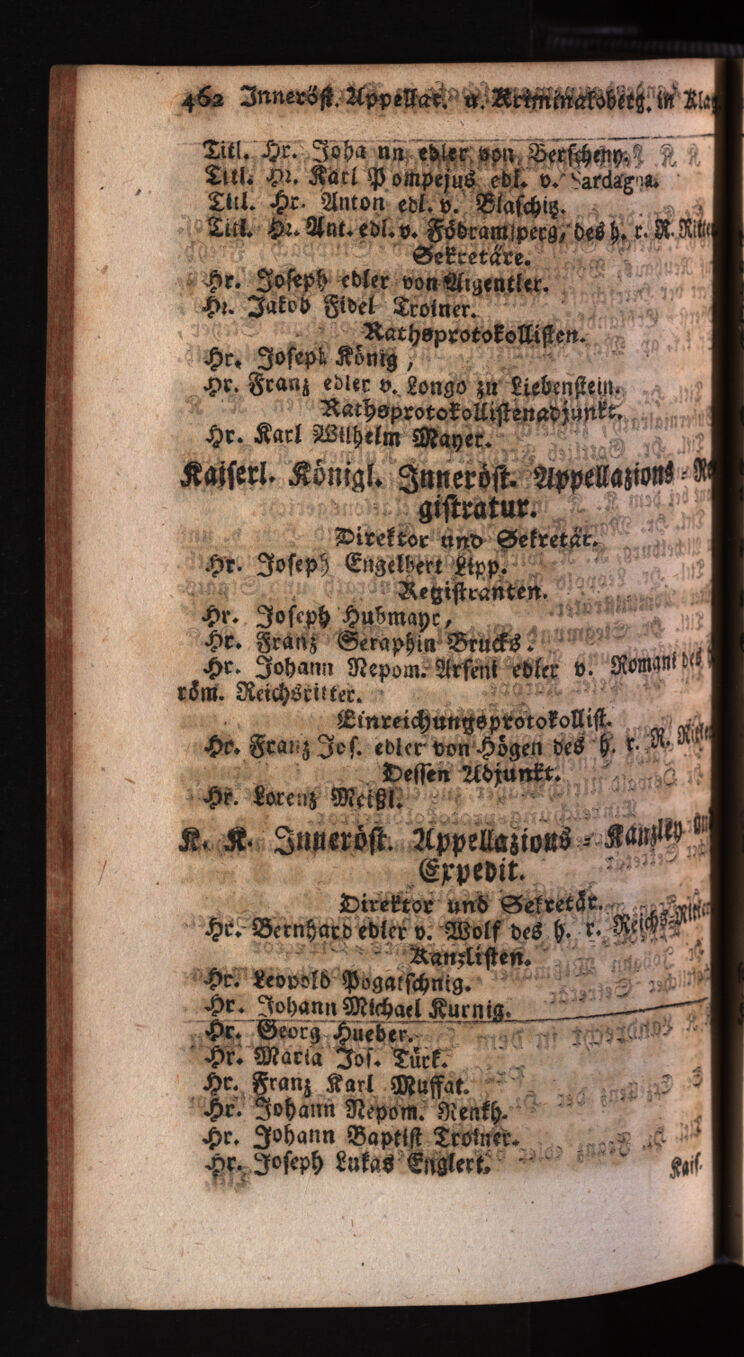 462 Inneröst. Appellat. u. Kriminaloberg. in Kla
Titl. Hr. Johann edler von Berscheny.
Titl. Hr. Karl Pompejus edl. v. Sardagna.
Titl. Hr. Anton edl. v. Blaschitz.
Titl. Hr. Ant. edl. v. Födransperg, des h. r. R. Ritte
Sekretäre.
Hr. Joseph edler von Aigentler.
Hr. Jakob Fidel Troiner.
Rathsprotokollisten.
Hr. Joseph König,
Hr. Franz edler v. Longo zu Liebenstein.
Rathsprotokollistenadjunkt.
Hr. Karl Wilhelm Mayer.
Kaiserl. Königl. Inneröst. Appellazions-Re
gistratur.
Direktor und Sekretär.
Hr. Joseph Engelbert Lipp.
Registranten.
Hr. Joseph Hubmayr,
Hr. Franz Seraphin Brucks.
Hr. Johann Nepom. Arseni edler v. Romani des
röm. Reichsritter.
Einreichungsprotokollist.
Hr. Franz Jos. edler von Högen des h. r. R. Ritte
Dessen Adjunkt.
Hr. Lorenz Meißl.
K. K. Inneröst. Appellazions-Kanzley und
Expedit.
Direktor und Sekretär.
Hr. Bernhard edler v. Wolf des h. r. Reichs-Ritter
Kanzlisten.
Hr. Leopold Pogatschnig.
Hr. Johann Michael Kurnig.
Hr. Georg Hueber.
Hr. Maria Jos. Türk.
Hr. Franz Karl Muffat.
Hr. Johann Nepom. Renkh.
Hr. Johann Baptist Troiner.
Hr. Joseph Lukas Englert.
Kais.